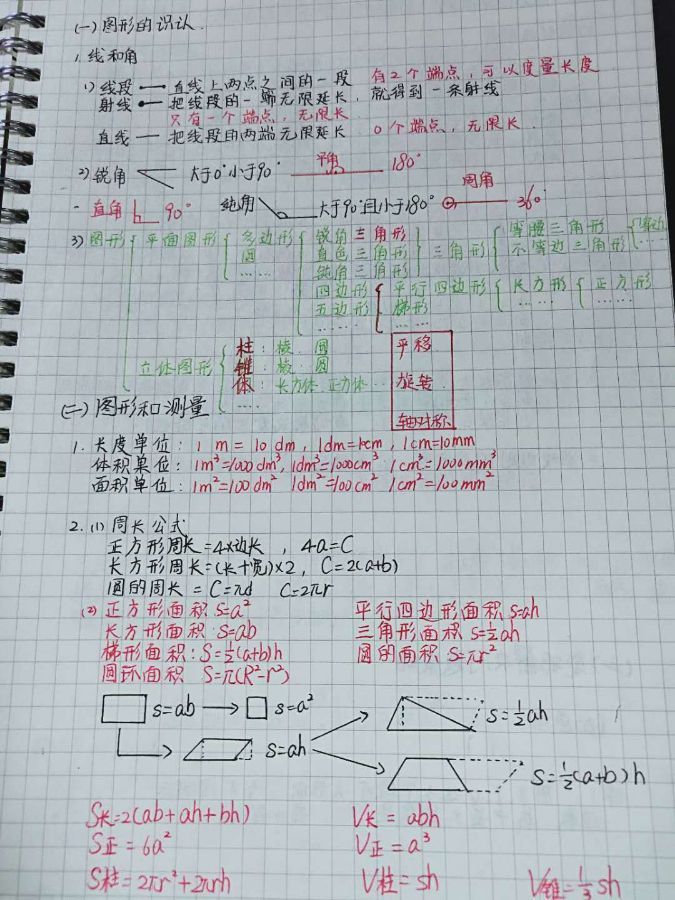 (一)图形的识认.
1.线和角
1)线段 直线上两点之间的一段 有2个端点,可以度量长度
射线 把线段的一端无限延长,就得到一条射线
只有一个端点,无限长
直线 — 把线段的两端无限延长 0个端点,无限长.
2)锐角 大于0°小于90° 平角 180°
直角 90° 钝角 大于90°且小于180° 周角 360°
3)图形 平面图形 多边形 锐角三角形 三角形 等腰三角形 等边
圆 直角三角形 不等边三角形 ……
…… 钝角三角形
四边形 平行四边形 长方形 正方形
五边形 梯形 …… ……
…… ……
立体图形 柱:棱.圆 平移
锥:棱.圆
体:长方体.正方体… 旋转
……
轴对称
(二)图形和测量
1.长度单位:1m=10dm,1dm=10cm,1cm=10mm
体积单位:1m³=1000dm³,1dm³=1000cm³ 1cm³=1000mm³
面积单位:1m²=100dm² 1dm²=100cm² 1cm²=100mm²
2.(1)周长公式
正方形周长=4×边长,4a=C
长方形周长=(长+宽)×2,C=2(a+b)
圆的周长=C=πd C=2πr
(2)正方形面积S=a² 平行四边形面积S=ah
长方形面积:S=ab 三角形面积S=½ah
梯形面积:S=½(a+b)h 圆的面积S=πr²
圆环面积 S=π(R²-r²)
S=ab S=a² S=½ah
S=ah
S=½(a+b)h
S长=2(ab+ah+bh) V长=abh
S正=6a² V正=a³
S柱=2πr²+2πrh V柱=sh V锥=⅓sh